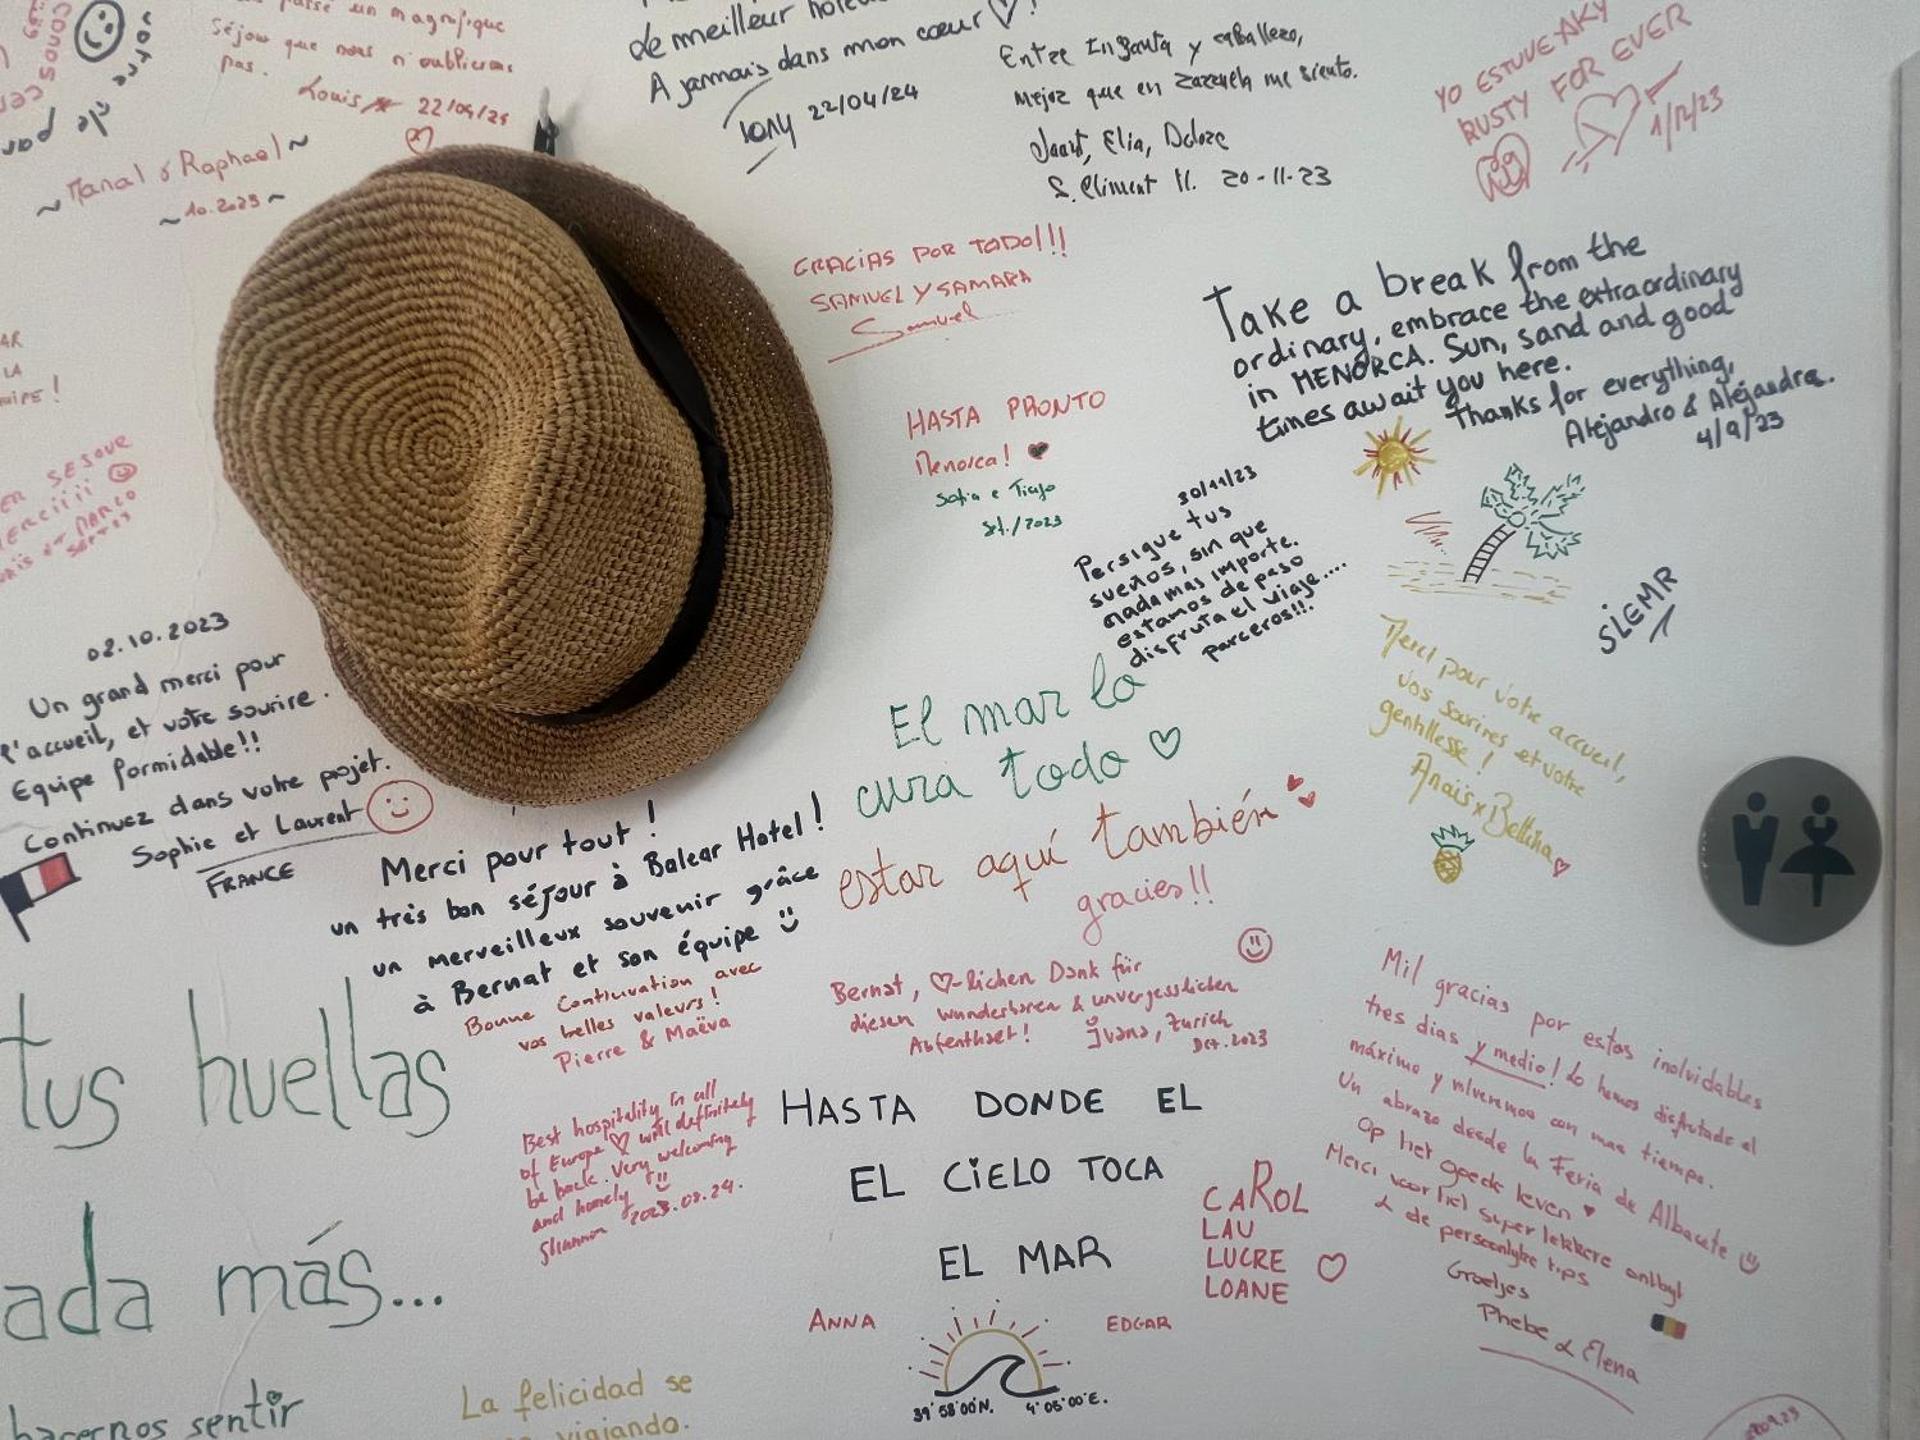 passé un magnifique
séjour que nous n'oublierons
pas.
Louis
~ Manal & Raphael ~
~ 10.2023 ~
le meilleur
A jamais dans mon cœur ♡!
Tony 22/04/24
Entre Infanta y caballero,
mejor que en zarzuela me siento.
Elia,
S. Climent 11. 20-11-23
YO ESTUVE AKY
RUSTY FOR EVER
1/12/23
GRACIAS POR TODO!!!
SAMUEL Y SAMARA
Samuel
Take a break from the
ordinary, embrace the extraordinary
in MENORCA. Sun, sand and good
times await you here.
Thanks for everything,
Alejandro & Alejandra.
4/9/23
HASTA PRONTO
Menorca! ♥
Sofia e Tiago
Set./2023
30/11/23
Persigue tus
sueños, sin que
nada mas importe.
estamos de paso
disfruta el viaje....
parceros!!!
SiEMR
Merci pour votre accueil,
vos sourires et votre
gentillesse!
Anaïs x Bettina
AR
LA
IPE!
SEJOUR
MERCiiii
MARZO
02.10.2023
Un grand merci pour
l'accueil, et votre sourire.
Equipe formidable!!
Continuez dans votre projet.
Sophie et Laurent
FRANCE
El mar lo
cura todo ♡
estar aquí también
gracies!!
Merci pour tout !
un très bon séjour à Balear Hotel !
un merveilleux souvenir grâce
à Bernat et son équipe
Bonne Continuation avec
vos belles valeurs!
Pierre & Maëva
Bernat, ♡-lichen Dank für
diesen wunderbaren & unvergesslichen
Aufenthalt!
Ivana, Zurich
2023
tus huellas
ada más...
hacernos sentir
Best hospitality in all
of Europe ♡ will definitely
be back. Very welcoming
and homely
Shannon 2023.08.24.
HASTA DONDE EL
EL CiELO TOCA
EL MAR
ANNA
EDGAR
39°58'00"N. 4°05'00"E.
CAROL
LAU
LUCRE ♡
LOANE
Mil gracias por estos inolvidables
tres dias y medio! Lo hemos disfrutado al
máximo y volveremos con mas tiempo.
Un abrazo desde la Feria de Albacete
Op het goede leven ♥
Merci voor het super lekkere ontbijt
& de persoonlijke tips
Groetjes
Phebe & Elena
La felicidad se
viajando.